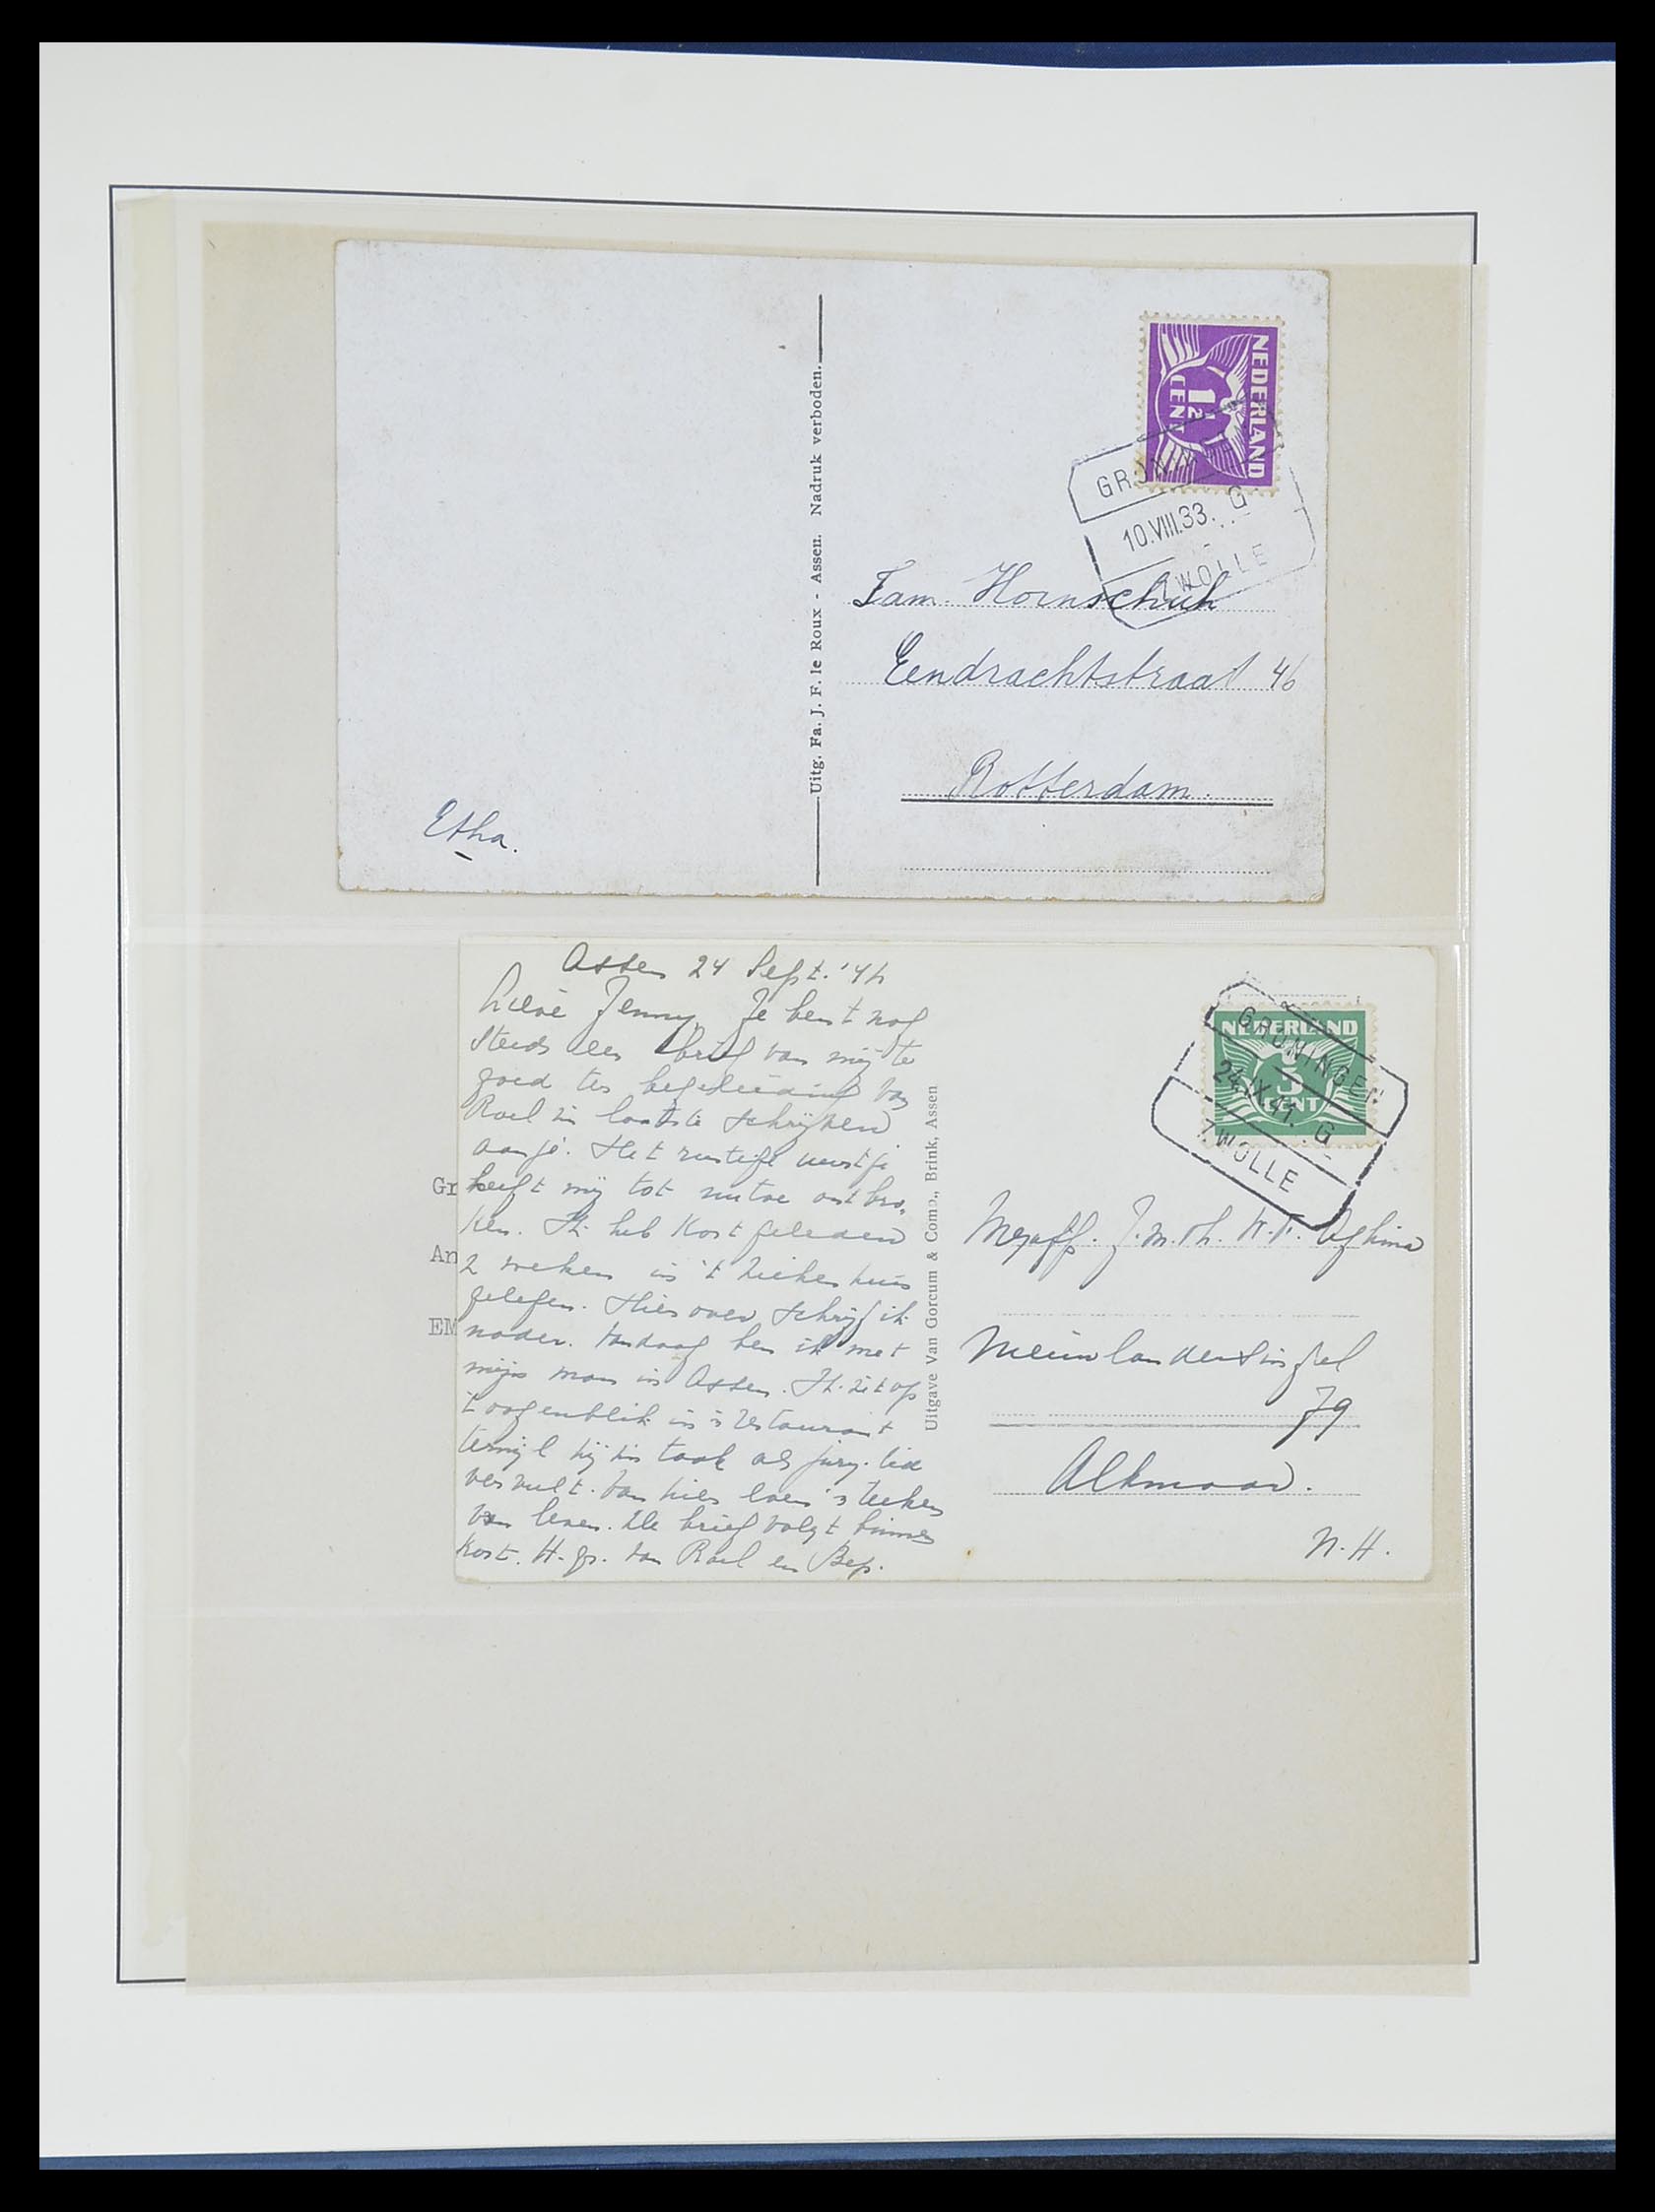 NEDERLAND
1½
CENT
GRONINGEN
10.VIII.33. G
ZWOLLE
Fam. Hornschuh
Eendrachtstraat 46
Rotterdam.
Etha.
Uitg. Fa. J. F. le Roux - Assen. Nadruk verboden.
Assen 24 Sept. '41
Lieve Jenny, Je bent nog
steeds een brief van mij te
goed ter begeleiding van
Roel zn laatste schrijven
aan je. Het rustige uurtje
heeft mij tot nu toe ontbro-
ken. Ik heb kort geleden
2 weken in 't ziekenhuis
gelegen. Hierover schrijf ik
nader. Vandaag ben ik met
mijn man in Assen. Ik zit op
't oogenblik in 'n restaurant
terwijl hij zijn taak als jury-lid
vervult. Van hier even 'n teeken
van leven. De brief volgt binnen
kort. H. gr. van Roel en Bep.
Uitgave Van Gorcum & Comp., Brink, Assen
NEDERLAND
3
CENT
GRONINGEN
24.IX.41. G
ZWOLLE
Mejuff. J.M.Th.
Nieuwlandersingel
79
Alkmaar.
N.H.
Gr
An
EM